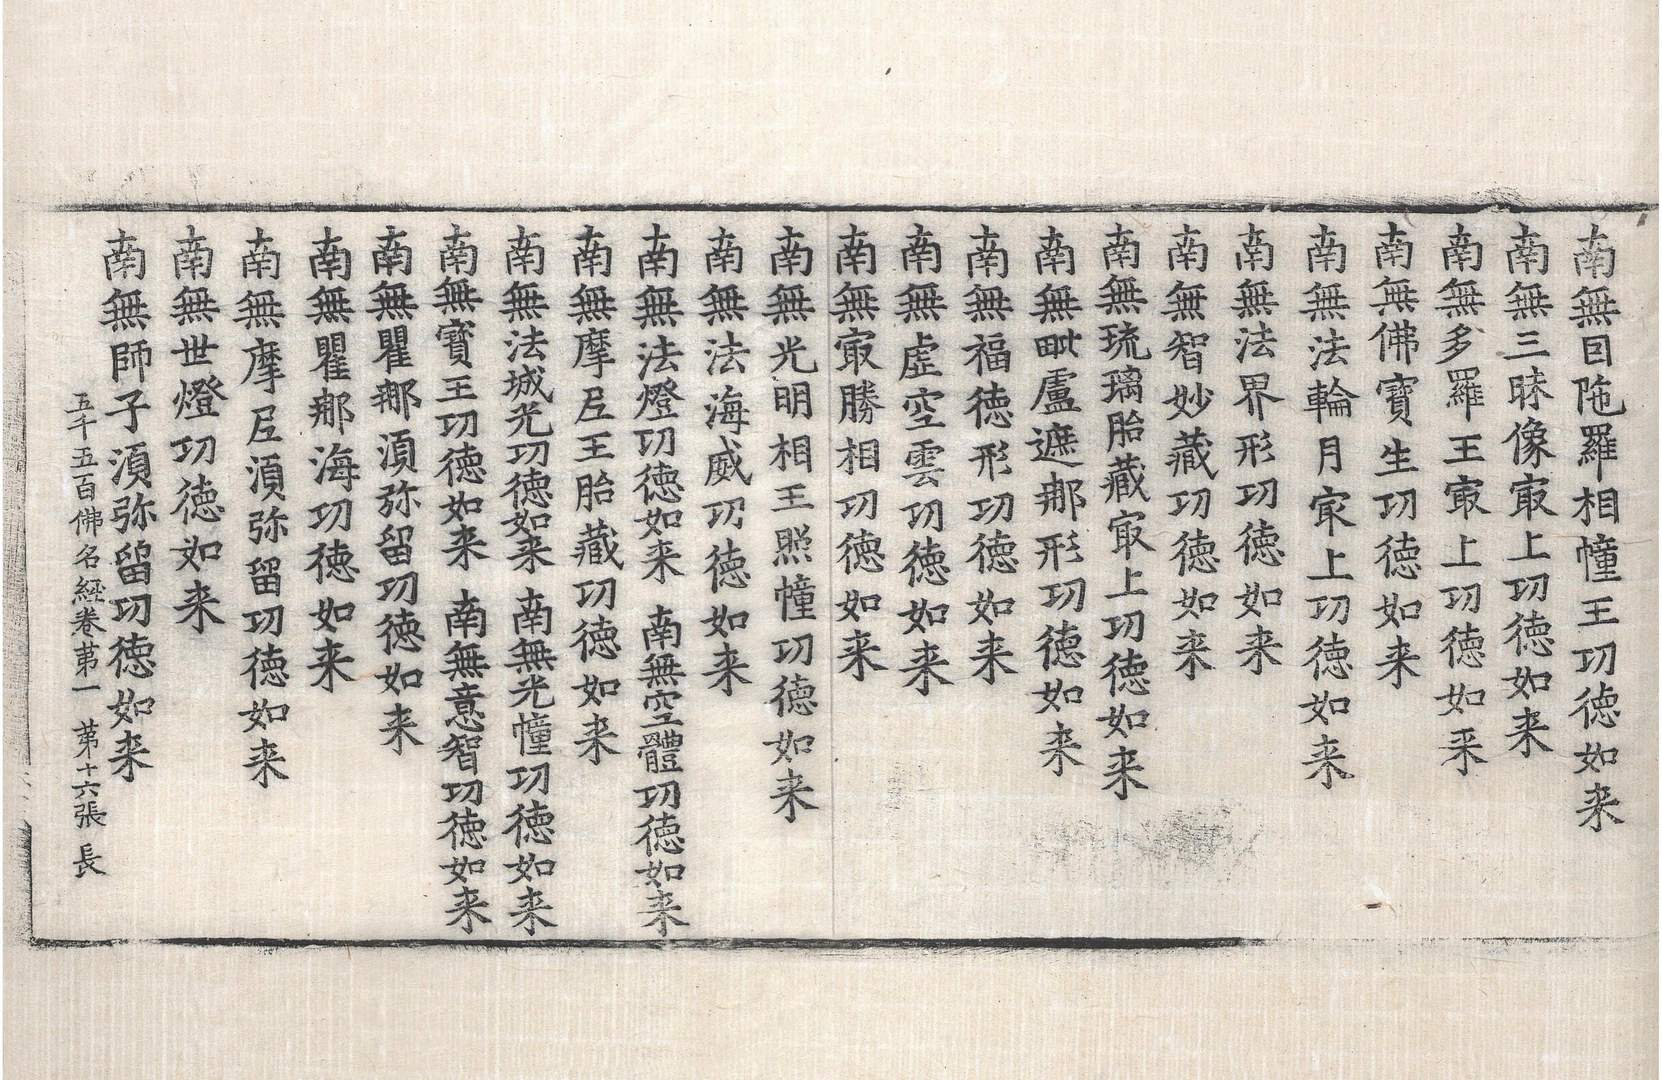 南無因陁羅相幢王功德如来
南無三昧像㝡上功德如来
南無多羅王㝡上功德如来
南無佛寶生功德如来
南無法輪月㝡上功德如来
南無法界形功德如来
南無智妙藏功德如来
南無琉璃胎藏㝡上功德如来
南無毗盧遮郍形功德如来
南無福德形功德如来
南無虛空雲功德如来
南無㝡勝相功德如来
南無光明相王照幢功德如来
南無法海威功德如来
南無法燈功德如来 南無空體功德如来
南無摩尼王胎藏功德如来
南無法城光功德如来 南無光幢功德如来
南無寶王功德如来 南無意智功德如来
南無瞿郍湏弥留功德如来
南無瞿郍海功德如来
南無摩尼湏弥留功德如来
南無世燈功德如来
南無師子湏弥留功德如来
五千五百佛名經卷苐一 苐十六張 長